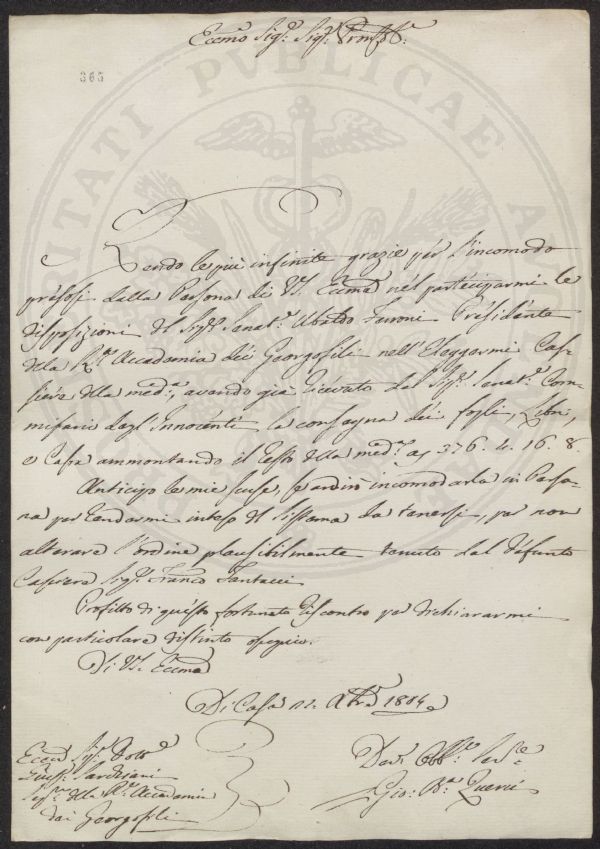 Eccmo Sigr: Sigr:
365
PROSPERITATI PVBLICAE AVGENDAE
Rendo le più infinite grazie per l'incomodo
presosi dalla Persona di VS. Eccma nel parteciparmi le
disposizioni del Sigr: Senatre Ubaldo Feroni Presidente
della Rle Accademia dei Georgofili nell'Eleggermi Cas-
siere della medma, avendo già ricevuto dal Sigr: Senatre Com-
missario degl'Innocenti la consegna dei fogli, Libri,
e Cassa ammontando il resto della medma a 376. 4. 16. 8.
Anticipo le mie scuse, se ardirò incomodarla in Perso-
na per rendermi inteso del sistema da tenersi, per non
alterare l'ordine plausibilmente tenuto dal defunto
Cassiere Sigr: Franco Fantacci
Profitto di questo fortunato riscontro per dichiararmi
con particolare distinto ossequio.
Di VS. Eccma
Di Casa 12. 1804
Eccmo Sigr: Dotte
Giuspe: Sarchiani
Segrio della Rle Accademia
dei Georgofili
Devo: Obbo: Serre
Gio: Bta: